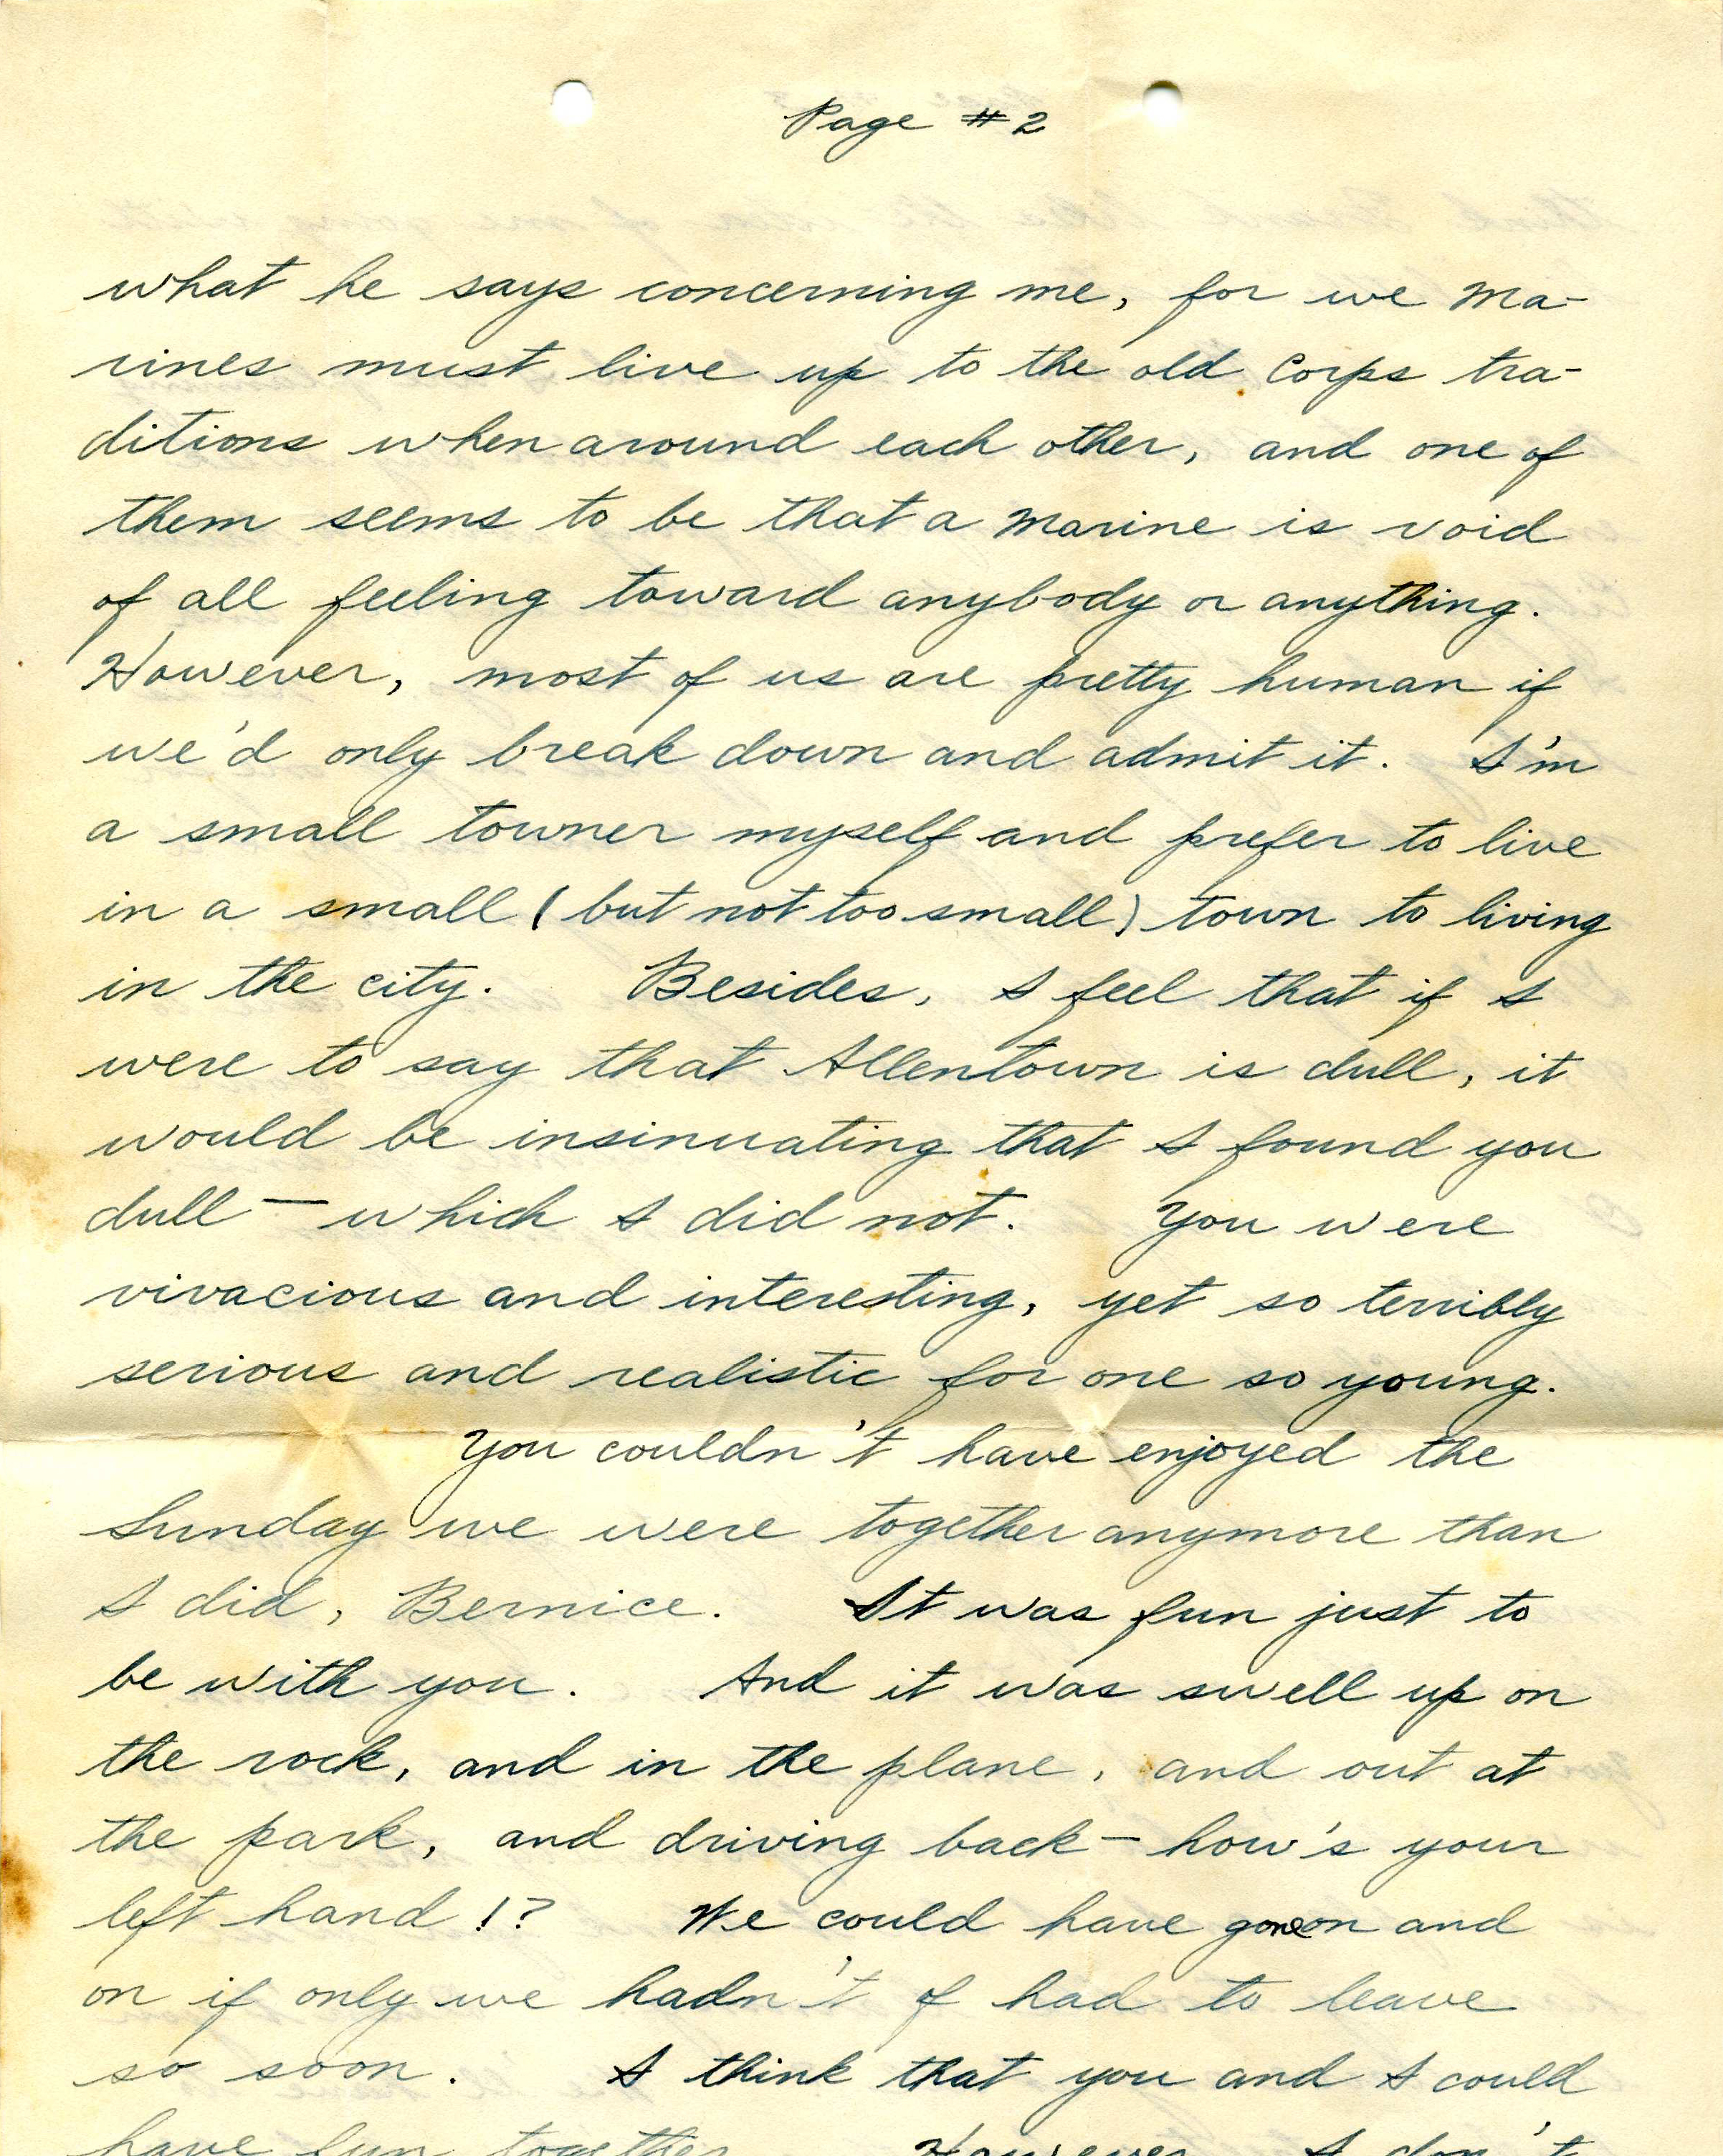 Page #2
what he says concerning me, for we Ma-
rines must live up to the old Corps tra-
ditions when around each other, and one of
them seems to be that a Marine is void
of all feeling toward anybody or anything.
However, most of us are pretty human if
we'd only break down and admit it. I'm
a small towner myself and prefer to live
in a small (but not too small) town to living
in the city. Besides, I feel that if I
were to say that Allentown is dull, it
would be insinuating that I found you
dull — which I did not. You were
vivacious and interesting, yet so terribly
serious and realistic for one so young.
You couldn't have enjoyed the
Sunday we were together anymore than
I did, Bernice. It was fun just to
be with you. And it was swell up on
the rock, and in the plane, and out at
the park, and driving back — how's your
left hand!? We could have gone on and
on if only we hadn't of had to leave
so soon. I think that you and I could
have fun together However I don't